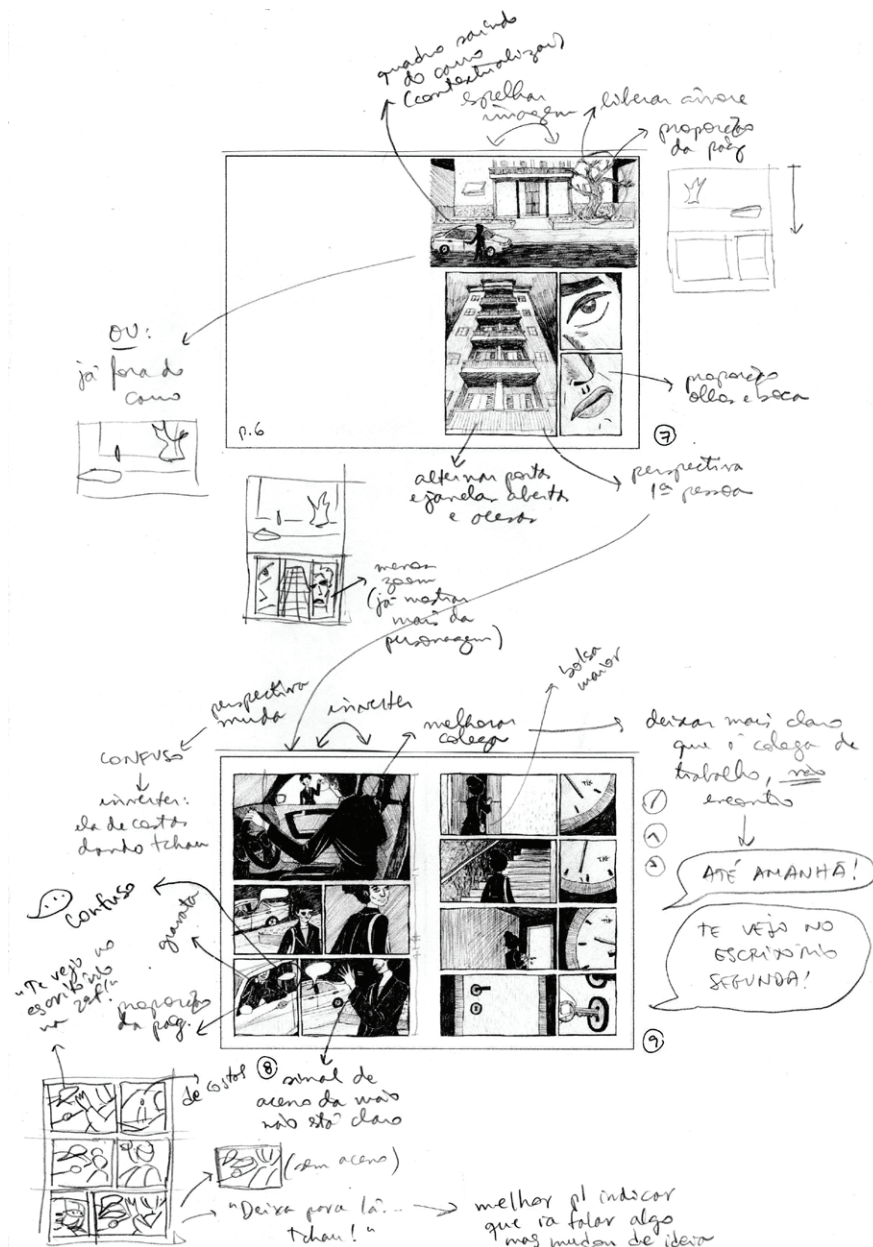 quadro saindo
do carro
(contextualizar)
espelhar
imagem
liberar árvore
proporção
da pág
OU:
já fora do
carro
p.6
7
proporção
olhos e boca
alternar portas
e janelas abertas
e acesas
perspectiva
1ª pessoa
menos
zoom
(já mostrar
mais da
personagem)
perspectiva
muda
inverter
melhorar
colega
bolsa
maior
deixar mais claro
que é colega de
trabalho, não
encontro
CONFUSO
inverter:
ela de costas
dando tchau
ATÉ AMANHÃ!
TE VEJO NO
ESCRITÓRIO
SEGUNDA!
...
Confuso
gravata
"Te vejo no
escritório
na 2ªf!"
proporção
da pág.
8
9
de costas
sinal de
aceno da mão
não está claro
(sem aceno)
"Deixa para lá...
tchau!"
melhor p/ indicar
que ia falar algo
mas mudou de ideia